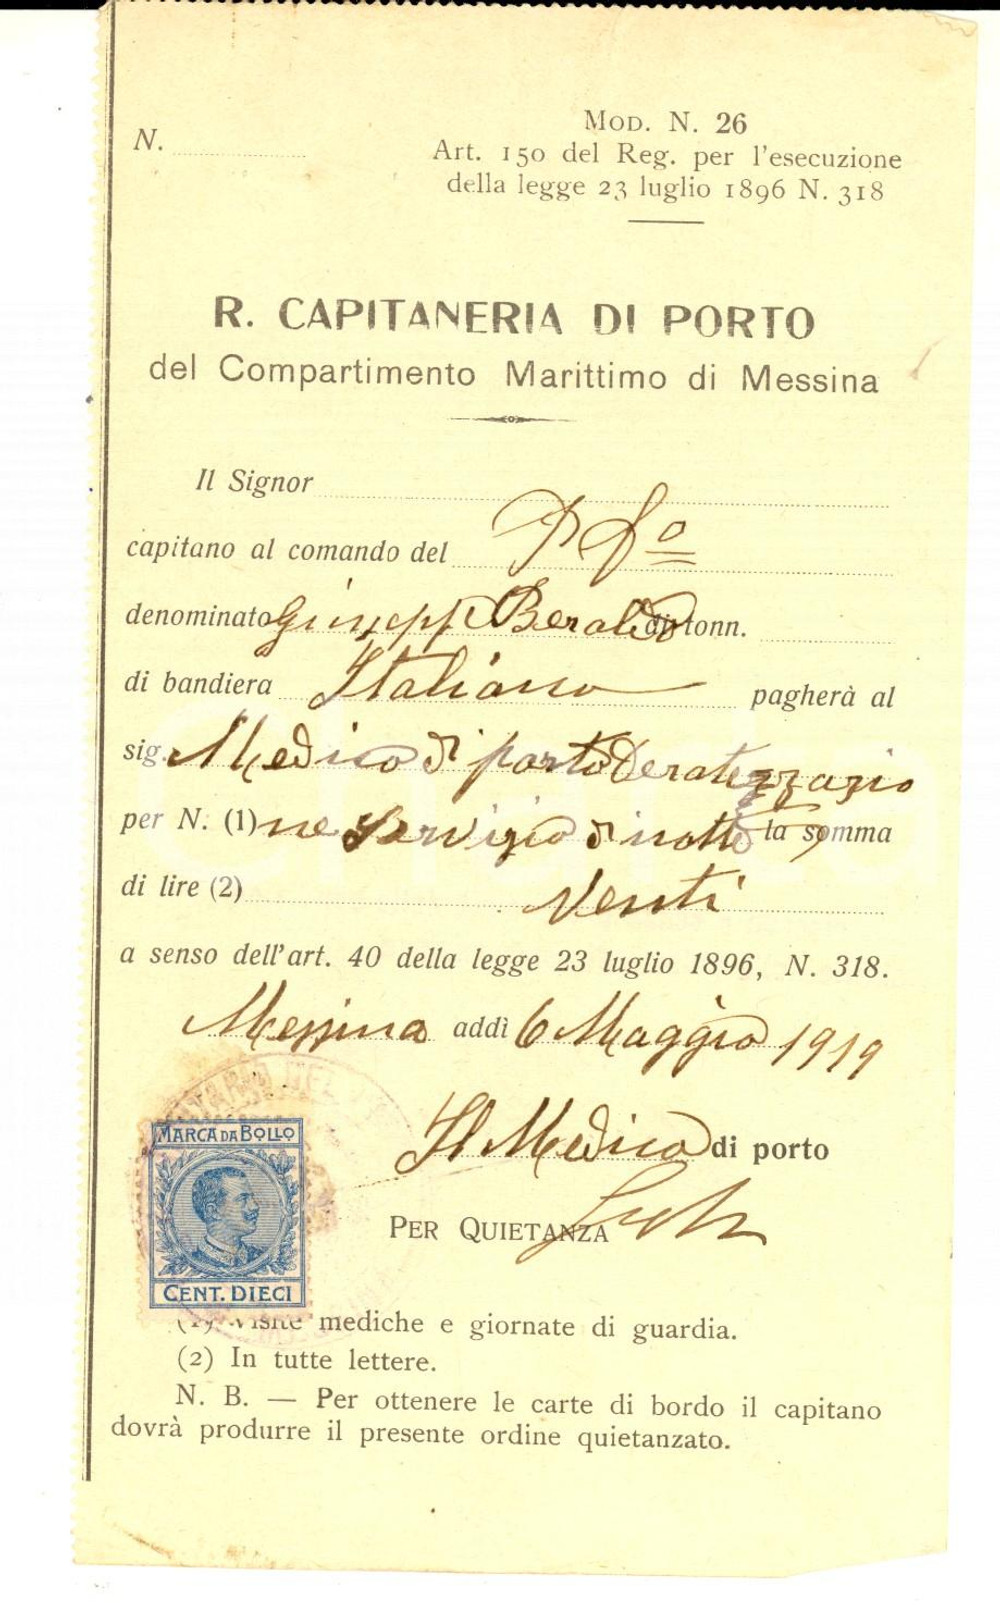 N.
MOD. N. 26
Art. 150 del Reg. per l'esecuzione
della legge 23 luglio 1896 N. 318
R. CAPITANERIA DI PORTO
del Compartimento Marittimo di Messina
Il Signor
capitano al comando del P fo
denominato Giuseppe Beraldo di tonn.
di bandiera Italiana pagherà al
sig. Medico di porto Deratizzazio
per N. (1) ne Servizio di notte la somma
di lire (2) Venti
a senso dell'art. 40 della legge 23 luglio 1896, N. 318.
Messina addì 6 Maggio 1919
Il Medico di porto
PER QUIETANZA
MARCA DA BOLLO
CENT. DIECI
(1) Visite mediche e giornate di guardia.
(2) In tutte lettere.
N. B. — Per ottenere le carte di bordo il capitano
dovrà produrre il presente ordine quietanzato.